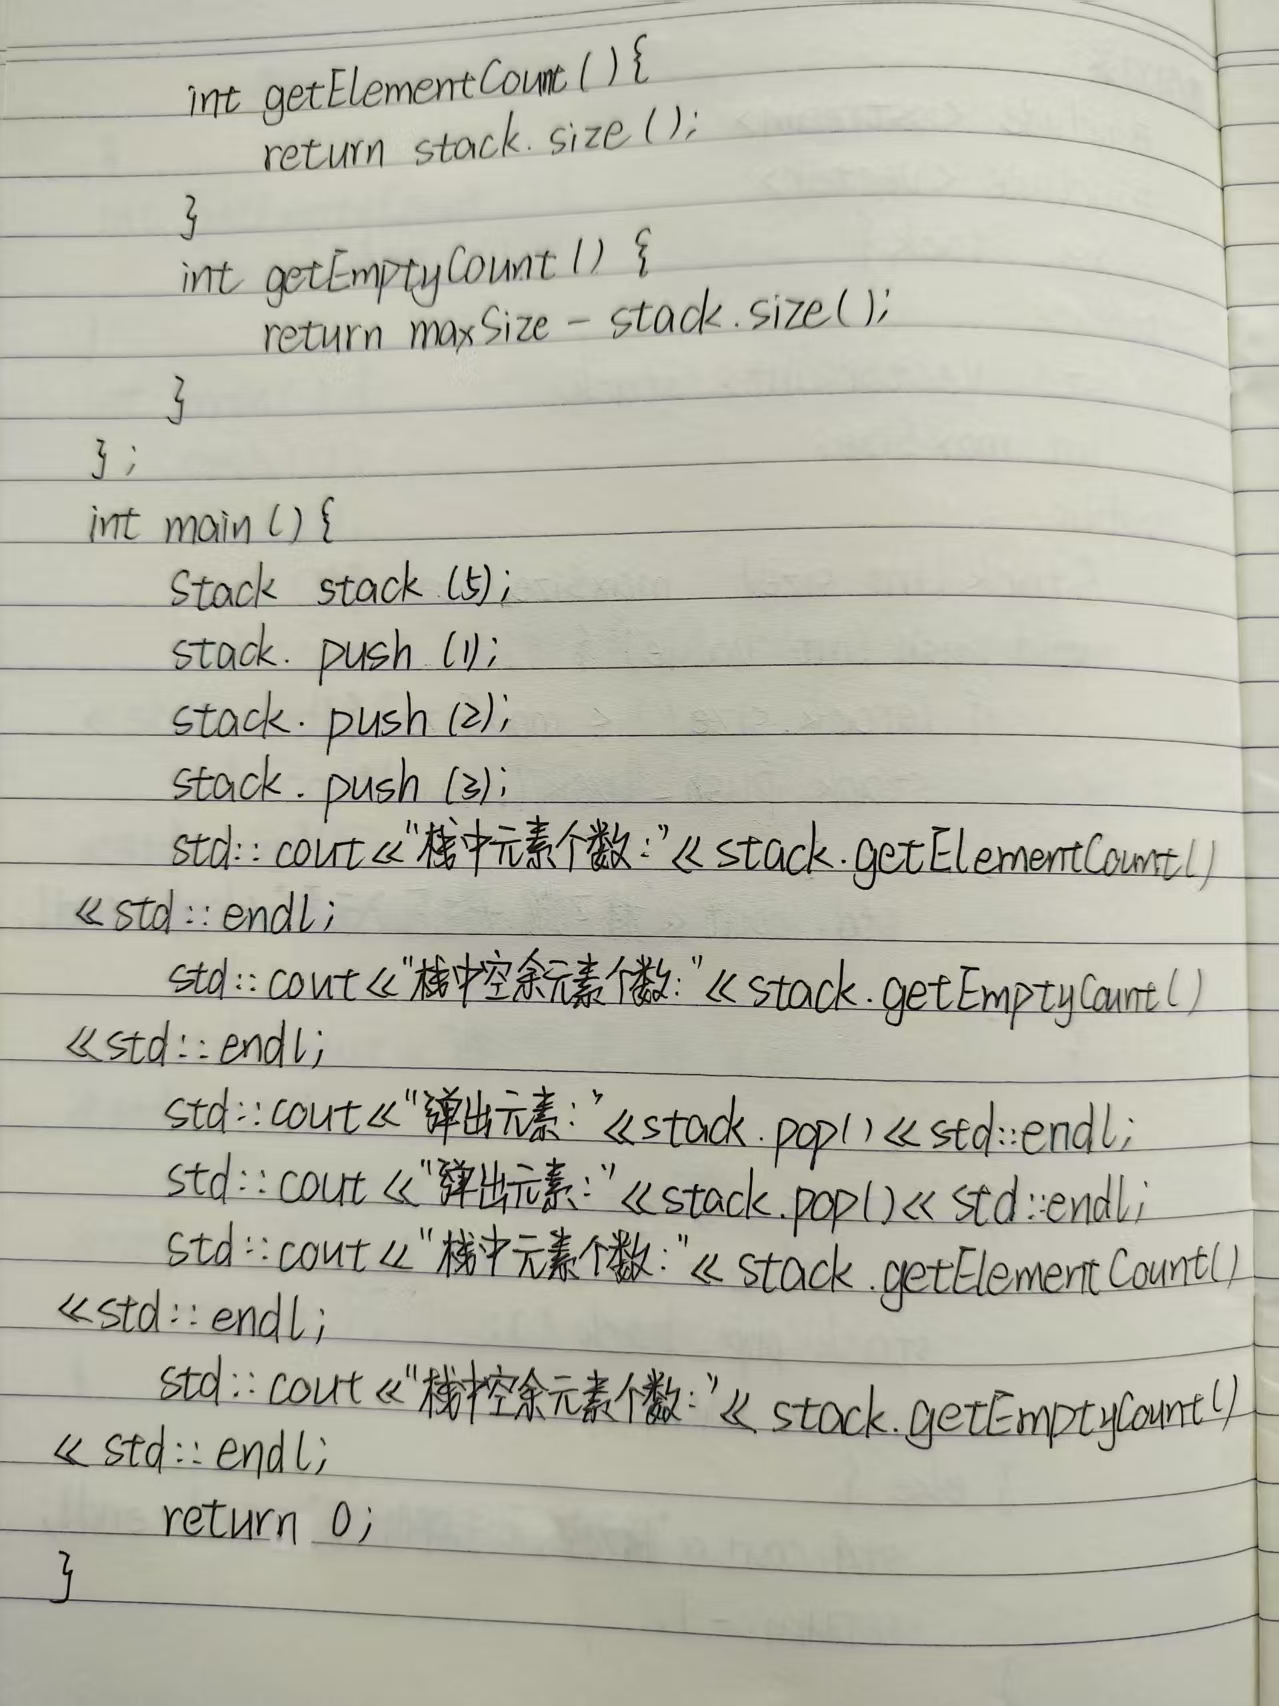 int getElementCount(){
return stack.size();
}
int getEmptyCount() {
return maxSize - stack.size();
}
};
int main(){
Stack stack(5);
stack.push(1);
stack.push(2);
stack.push(3);
std::cout<<"栈中元素个数:"<<stack.getElementCount()
<<std::endl;
std::cout<<"栈中空余元素个数:"<<stack.getEmptyCount()
<<std::endl;
std::cout<<"弹出元素:"<<stack.pop()<<std::endl;
std::cout<<"弹出元素:"<<stack.pop()<<std::endl;
std::cout<<"栈中元素个数:"<<stack.getElementCount()
<<std::endl;
std::cout<<"栈中空余元素个数:"<<stack.getEmptyCount()
<<std::endl;
return 0;
}